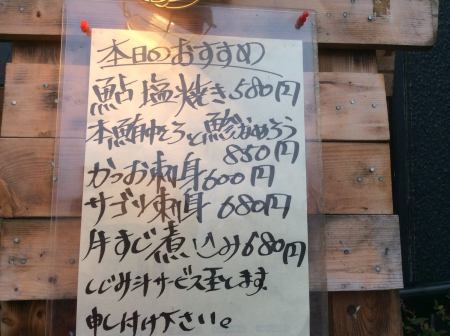 本日のおすすめ
鮎塩焼き580円
本鮪中とろと鯵なめろう
850円
かつお刺身600円
サゴリ刺身680円
牛すじ煮込み680円
しじみ汁サービス至します。
申し付け下さい。